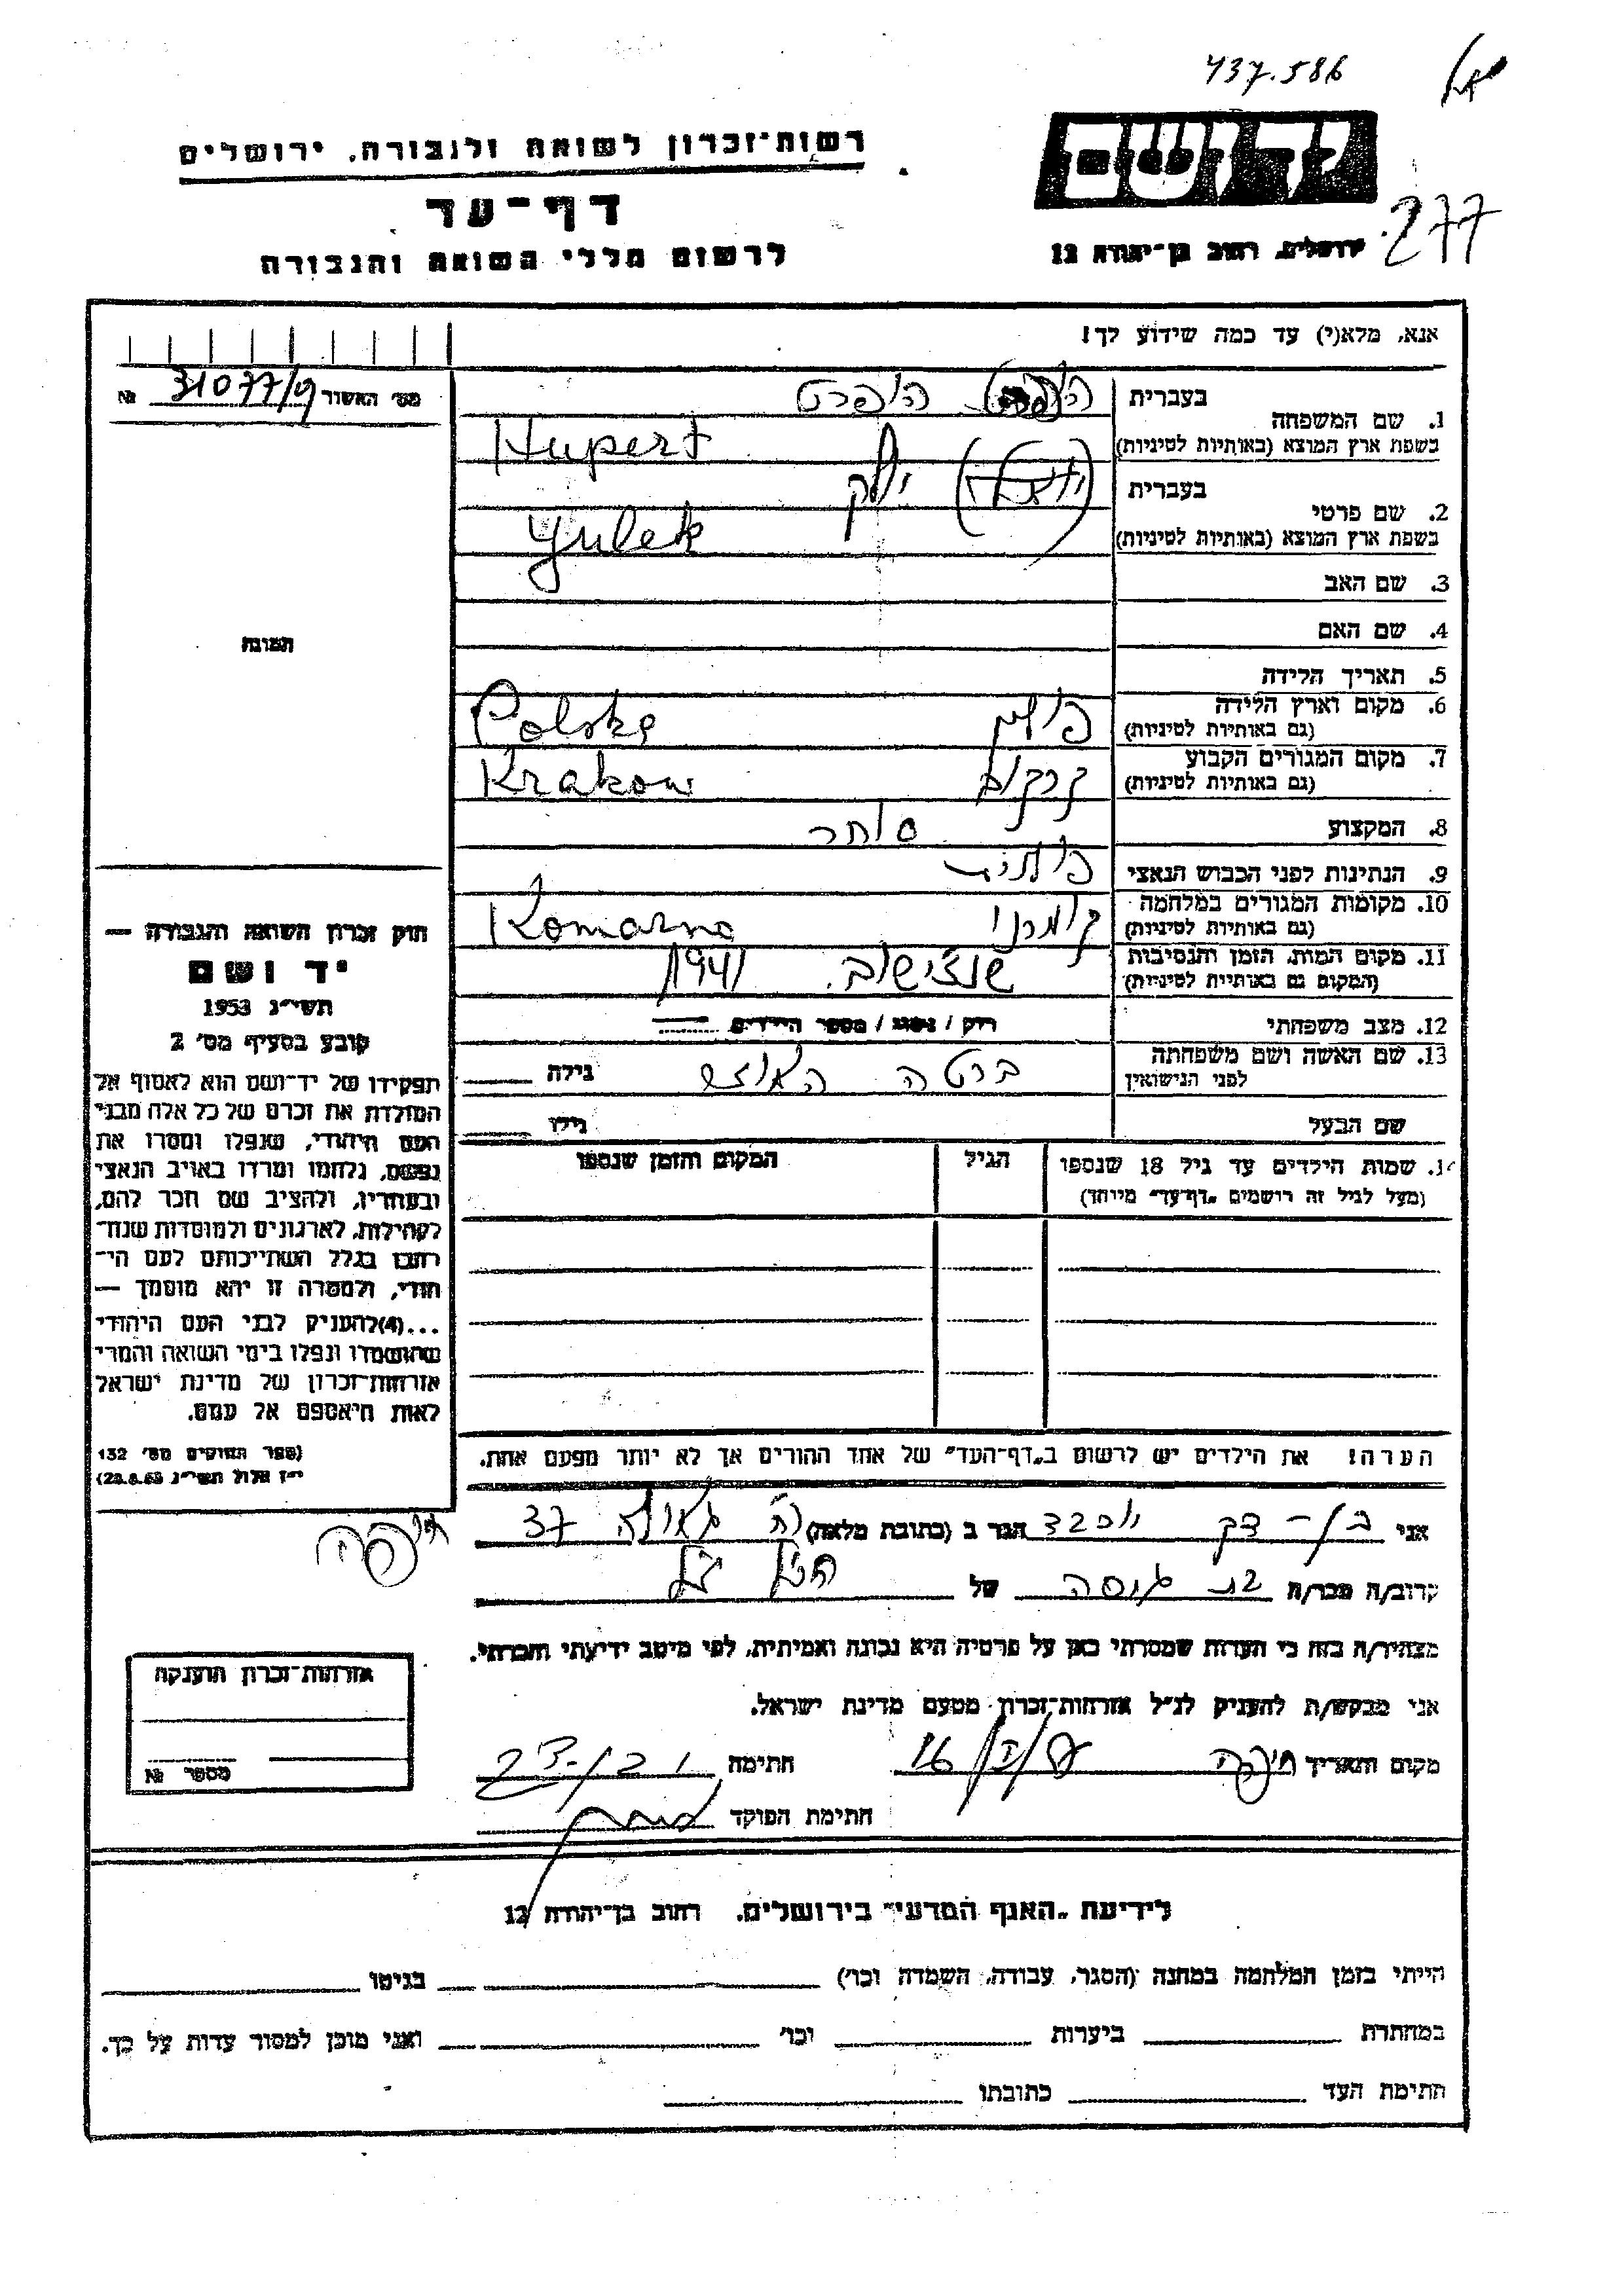 437.586
רשות־זכרון לשואה ולגבורה, ירושלים
יד ושם
דף־עד
277
ירושלים, רחוב בן־יהודה 12
לרשום חללי השואה והגבורה
אנא, מלא(י) עד כמה שידוע לך!
מס׳ האשור 31077/9 №
בעברית הופרט
1. שם המשפחה
בשפת ארץ המוצא (באותיות לטיניות) Hupert
בעברית יולק
2. שם פרטי
בשפת ארץ המוצא (באותיות לטיניות) Yulek
3. שם האב
4. שם האם
תמונה
5. תאריך הלידה
6. מקום וארץ הלידה פולין Polske
(גם באותיות לטיניות)
7. מקום המגורים הקבוע קרקוב Krakow
(גם באותיות לטיניות)
8. המקצוע סוחר
9. הנתינות לפני הכבוש הנאצי פולנית
10. מקומות המגורים במלחמה קומרנו Komarno
(גם באותיות לטיניות)
11. מקום המות, הזמן והנסיבות 1941
(המקום גם באותיות לטיניות)
12. מצב משפחתי רוק / נשוי / מספר הילדים
13. שם האשה ושם משפחתה ברטה גילה
לפני הנישואין
שם הבעל גילו
חוק זכרון השואה והגבורה —
יד ושם
תשי״ג 1953
קובע בסעיף מס׳ 2
תפקידו של יד־ושם הוא לאסוף אל
המולדת את זכרם של כל אלה מבני
העם היהודי, שנפלו ומסרו את
נפשם, נלחמו ומרדו באויב הנאצי
ובעוזריו, ולהציב שם וזכר להם,
לקהילות, לארגונים ולמוסדות שנח־
רבו בגלל השתייכותם לעם הי־
הודי, ולמטרה זו יהא מוסמך —
...(4) להעניק לבני העם היהודי
שהושמדו ונפלו בימי השואה והמרי
אזרחות־זכרון של מדינת ישראל
לאות היאספם אל עמם.
(ספר החוקים מס׳ 132
י״ז אלול תשי״ג 28.8.53)
14. שמות הילדים עד גיל 18 שנספו הגיל המקום והזמן שנספו
(מעל לגיל זה רושמים „דף־עד״ מיוחד)
הערה! את הילדים יש לרשום ב„דף־העד״ של אחד ההורים אך לא יותר מפעם אחת.
אני בן־צבי הגר ב (כתובת מלאה) רח׳ גאולה 37
חיפה
קרוב/ה מכר/ה של
מצהיר/ה בזה כי העדות שמסרתי כאן על פרטיה היא נכונה ואמיתית, לפי מיטב ידיעתי והכרתי.
אני מבקש/ת להעניק לנ״ל אזרחות־זכרון מטעם מדינת ישראל.
מקום ותאריך חיפה חתימה
חתימת הפוקד
אזרחות־זכרון הוענקה
מספר №
לידיעת „האגף המדעי״ בירושלים, רחוב בן־יהודה 12
הייתי בזמן המלחמה במחנה (הסגר, עבודה, השמדה וכו׳) בגיטו
במחתרת ביערות וכו׳ ואני מוכן למסור עדות על כך.
חתימת העד כתובתו